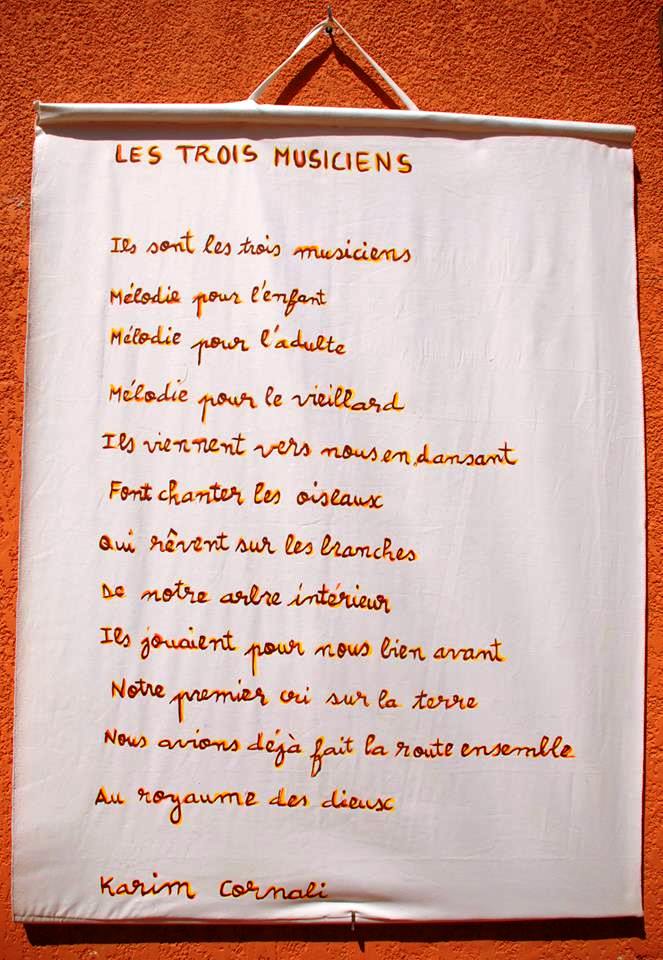 LES TROIS MUSICIENS
Ils sont les trois musiciens
Mélodie pour l'enfant
Mélodie pour l'adulte
Mélodie pour le vieillard
Ils viennent vers nous en dansant
Font chanter les oiseaux
Qui rêvent sur les branches
De notre arbre intérieur
Ils jouaient pour nous bien avant
Notre premier cri sur la terre
Nous avions déjà fait la route ensemble
Au royaume des dieux
Karim Cornali